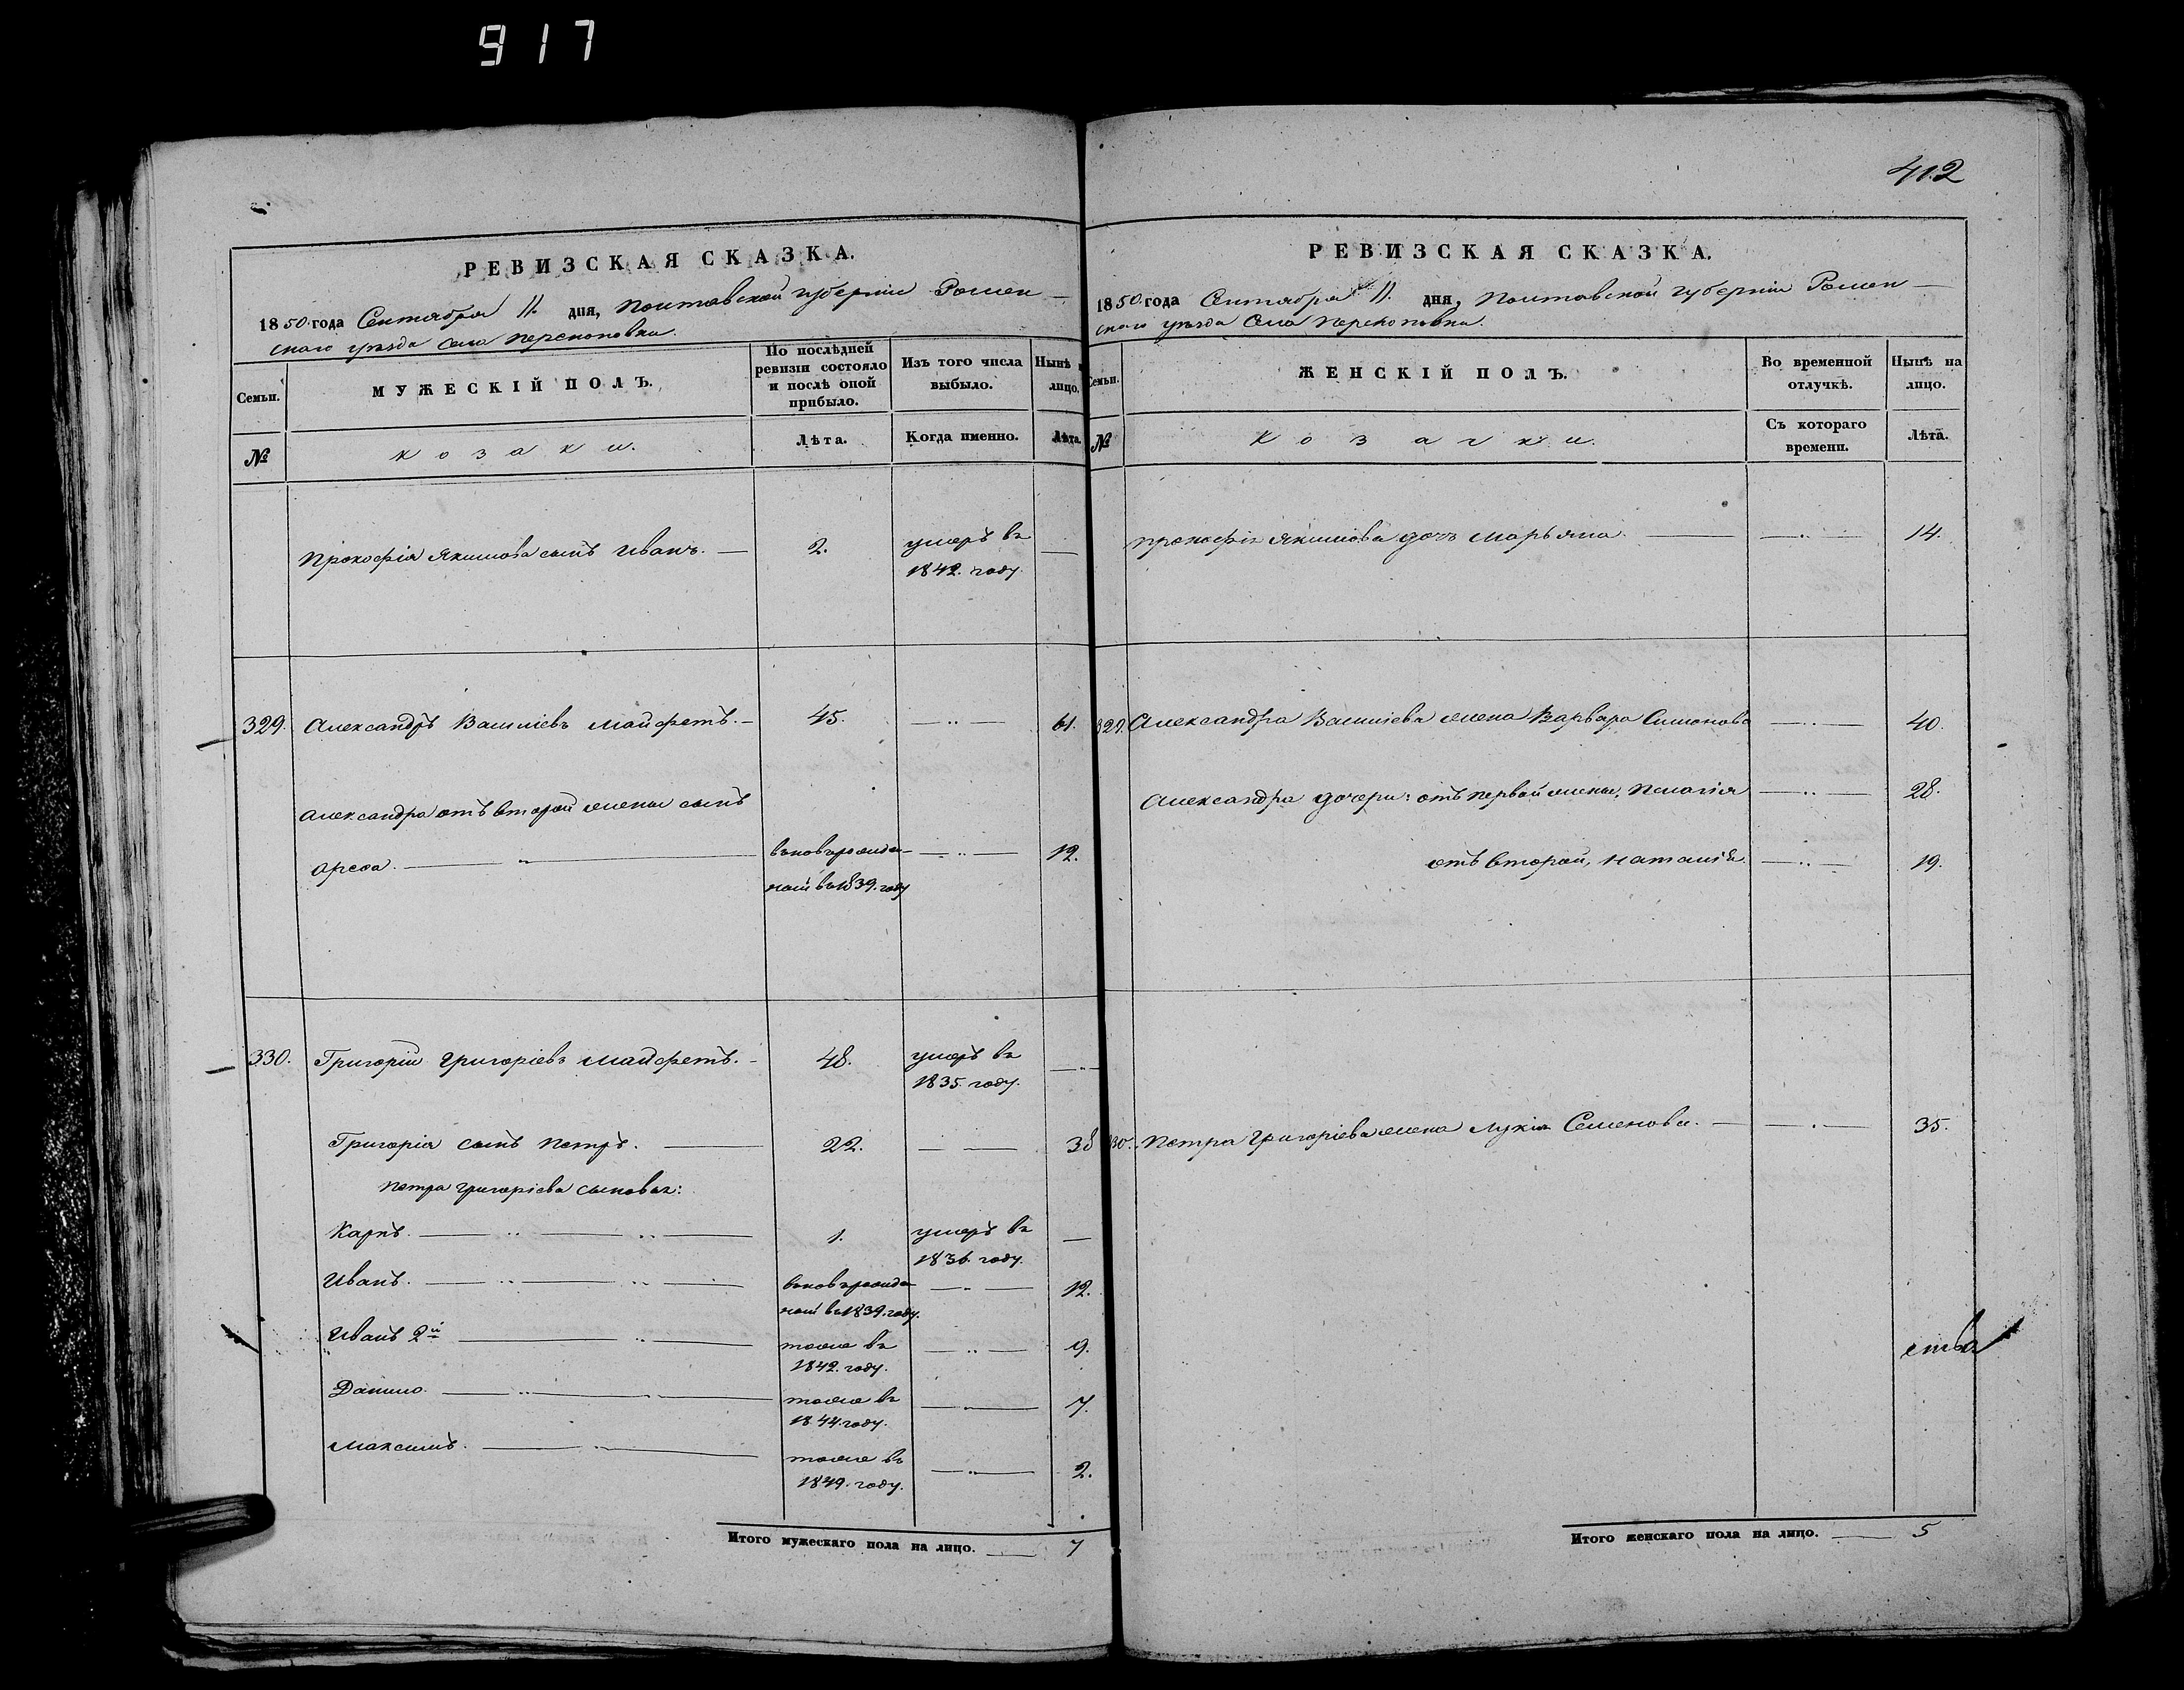 917
412
РЕВИЗСКАЯ СКАЗКА.
1850. года Сентября 11. дня, Полтавской губерніи Ромен-
скаго уѣзда села Перекоповки.
Семьи.
МУЖЕСКІЙ ПОЛЪ.
По послѣдней
ревизіи состояло
и послѣ оной
прибыло.
Изъ того числа
выбыло.
Нынѣ
лицо.
№
козаки.
Лѣта.
Когда именно.
Лѣта.
Прокофія Якимова сынъ Иванъ. — 2. умеръ въ
1842. году.
329. Александръ Василіевъ Майфетъ. — 45. — 61.
Александра отъ второй жены сынъ
Арсеа. — вновърожден-
ной въ 1839. году — 12.
330. Григорій Григоріевъ Майфетъ. — 48. умеръ въ
1835. году.
Григорія сынъ Петръ. — 22. — 38
Петра Григоріева сыновья:
Карпъ. — 1. умеръ въ
1836. году. —
Иванъ. — вновърожден
ной въ 1839. году. — 12.
Иванъ 2й — тоже въ
1842. году. — 9.
Данило. — тоже въ
1844. году. — 7.
Максимъ. — тоже въ
1849. году. — 2.
Итого мужескаго пола на лицо. — 7
РЕВИЗСКАЯ СКАЗКА.
1850. года Сентября 11. дня, Полтавской губерніи Ромен-
скаго уѣзда села Перекоповки.
Семьи.
ЖЕНСКІЙ ПОЛЪ.
Во временной
отлучкѣ.
Нынѣ на
лицо.
№
козачки.
Съ котораго
времени.
Лѣта.
Прокофія Якимова дочь Марьяна. — 14.
329. Александра Василіева жена Варвара Симонова — 40.
Александра дочери: отъ первой жены, Пелагія — 28.
отъ второй, Наталія. — 19.
30. Петра Григоріева жена Лукія Семенова. — 35.
ства
Итого женскаго пола на лицо. — 5